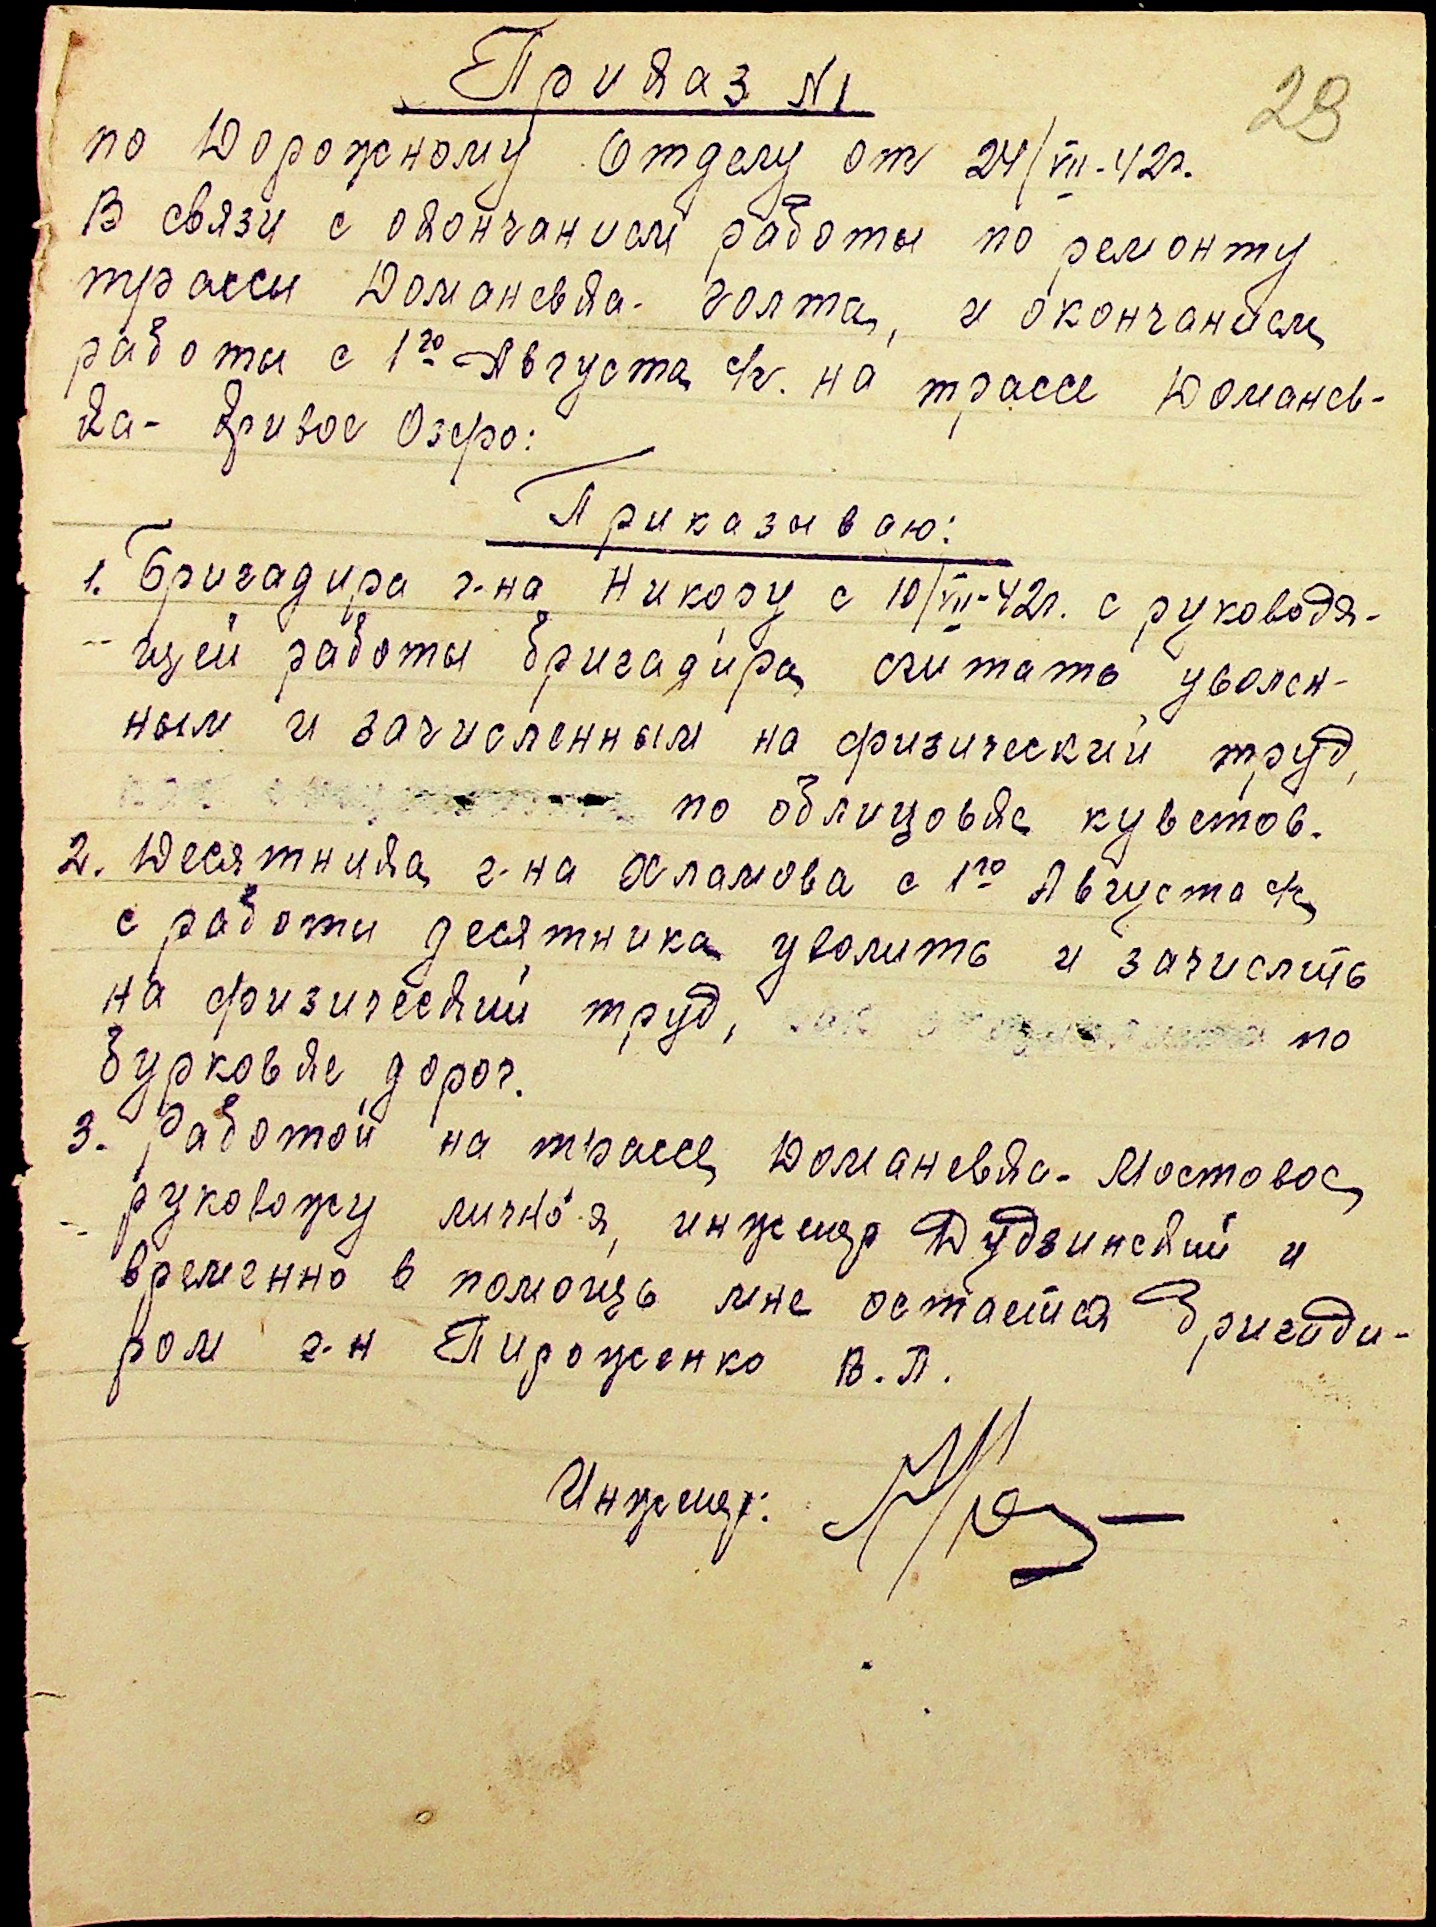 Приказ N1
29
по Дорожному Отделу от 24/VII-42г.
В связи с окончанием работы по ремонту
трассы Доманевка-Голта, и окончанием
работы с 1го Августа с/г. на трассе Доманев-
ка-Кривое Озеро:
Приказываю:
1. Бригадира г-на Никору с 10/VII-42г. с руководя-
щей работы бригадира считать уволен-
ным и зачисленным на физический труд,
по облицовке куветов.
2. Десятника г-на Хламова с 1го Августа с/г
с работы десятника уволить и зачислить
на физический труд, по
бурковке дорог.
3. Работой на трассе Доманевка-Мостовое
руковожу лично я, инженер Дудзинский и
временно в помощь мне остается бригади-
ром г-н Пироженко В.П.
Инженер: